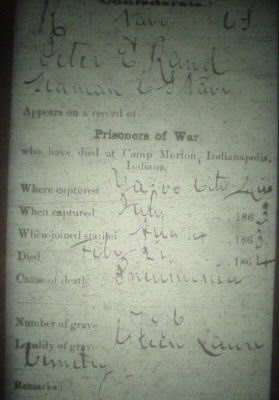 (Confederate.)
Navy
Peter C Rand
Seaman C S Navy
Appears on a record of
Prisoners of War
who have died at Camp Morton, Indianapolis,
Indiana.
Where captured Yazoo City Miss
When captured July 1863
When joined station Aug 4 1863
Died Feby 1864
Cause of death Pneumonia
Number of grave
Locality of grave Green Lawn
Cemetery
Remarks: